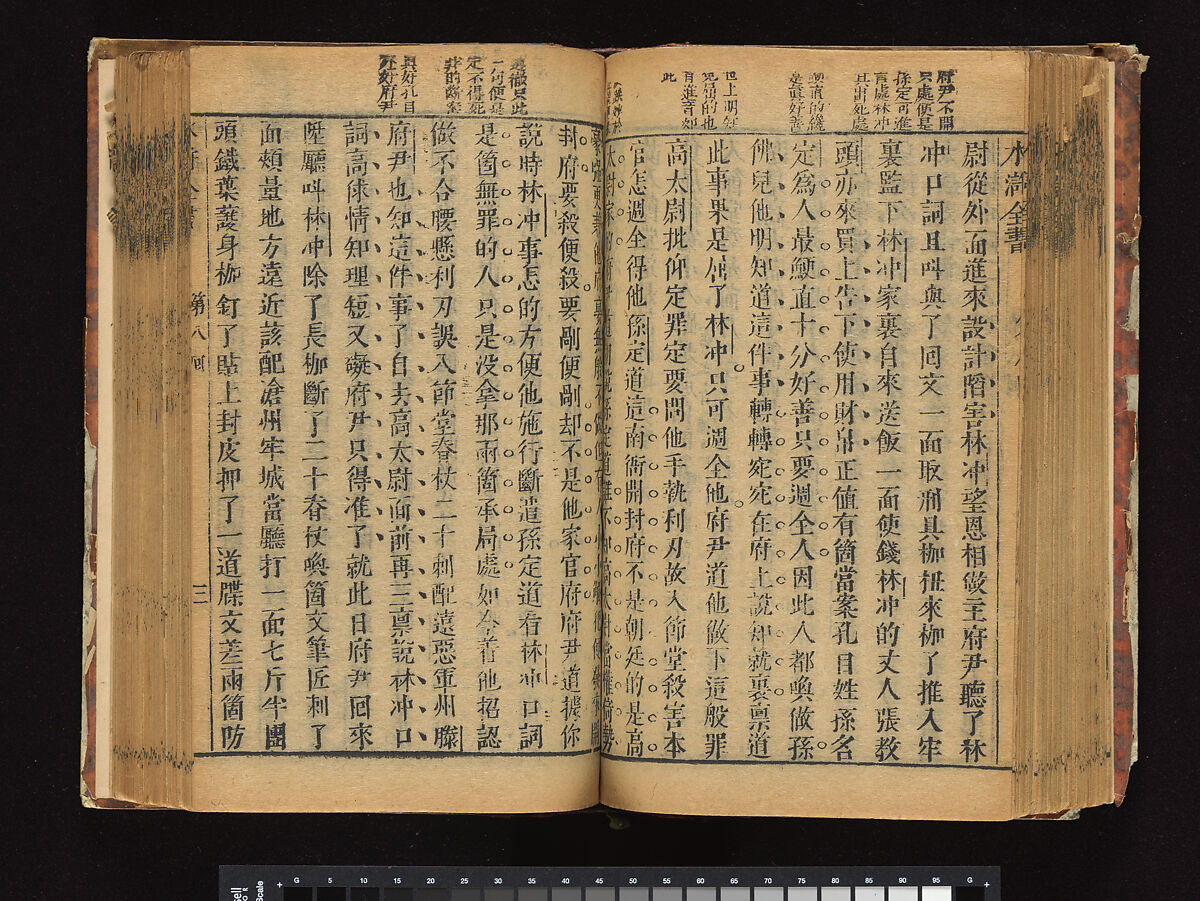 水滸全書
府尹不開
只處便是
孫定可進
言處林冲
此
尉從外面進來設計陷害林冲望恩相做主府尹聽了林
冲口詞且呌與了囘文一面取刑具枷杻來枷了推入牢
裏監下林冲家裏自來送飯一面使錢林冲的丈人張教
頭亦來買上告下使用財帛正値有箇當案孔目姓孫名
定爲人最鯁直十分好善只要週全人因此人都喚做孫
佛兒他明知道這件事轉轉宛宛在府上說知就裏禀道
此事果是屈了林冲只可週全他府尹道他做下這般罪
高太尉批仰定罪定要問他手執利刃故入節堂殺害本
官怎週全得他孫定道這南衙開封府不是朝廷的是高
太尉家的
封府要殺便殺要剮便剮却不是他家官府府尹道據你
說時林冲事怎的方便他施行斷遣孫定道看林冲口詞
是箇無罪的人只是没拿那兩箇承局處如今着他招認
做不合腰懸利刃誤入節堂脊杖二十刺配遠惡軍州滕
府尹也知這件事了自去高太尉面前再三禀說林冲口
詞高俅情知理短又礙府尹只得准了就此日府尹囘來
陞廳呌林冲除了長枷斷了二十脊杖喚箇文筆匠刺了
面頰量地方遠近該配滄州牢城當廳打一面七斤半團
頭鐵葉護身枷釘了貼上封皮押了一道牒文差兩箇防
一句便是
定不得死
第八囘
三